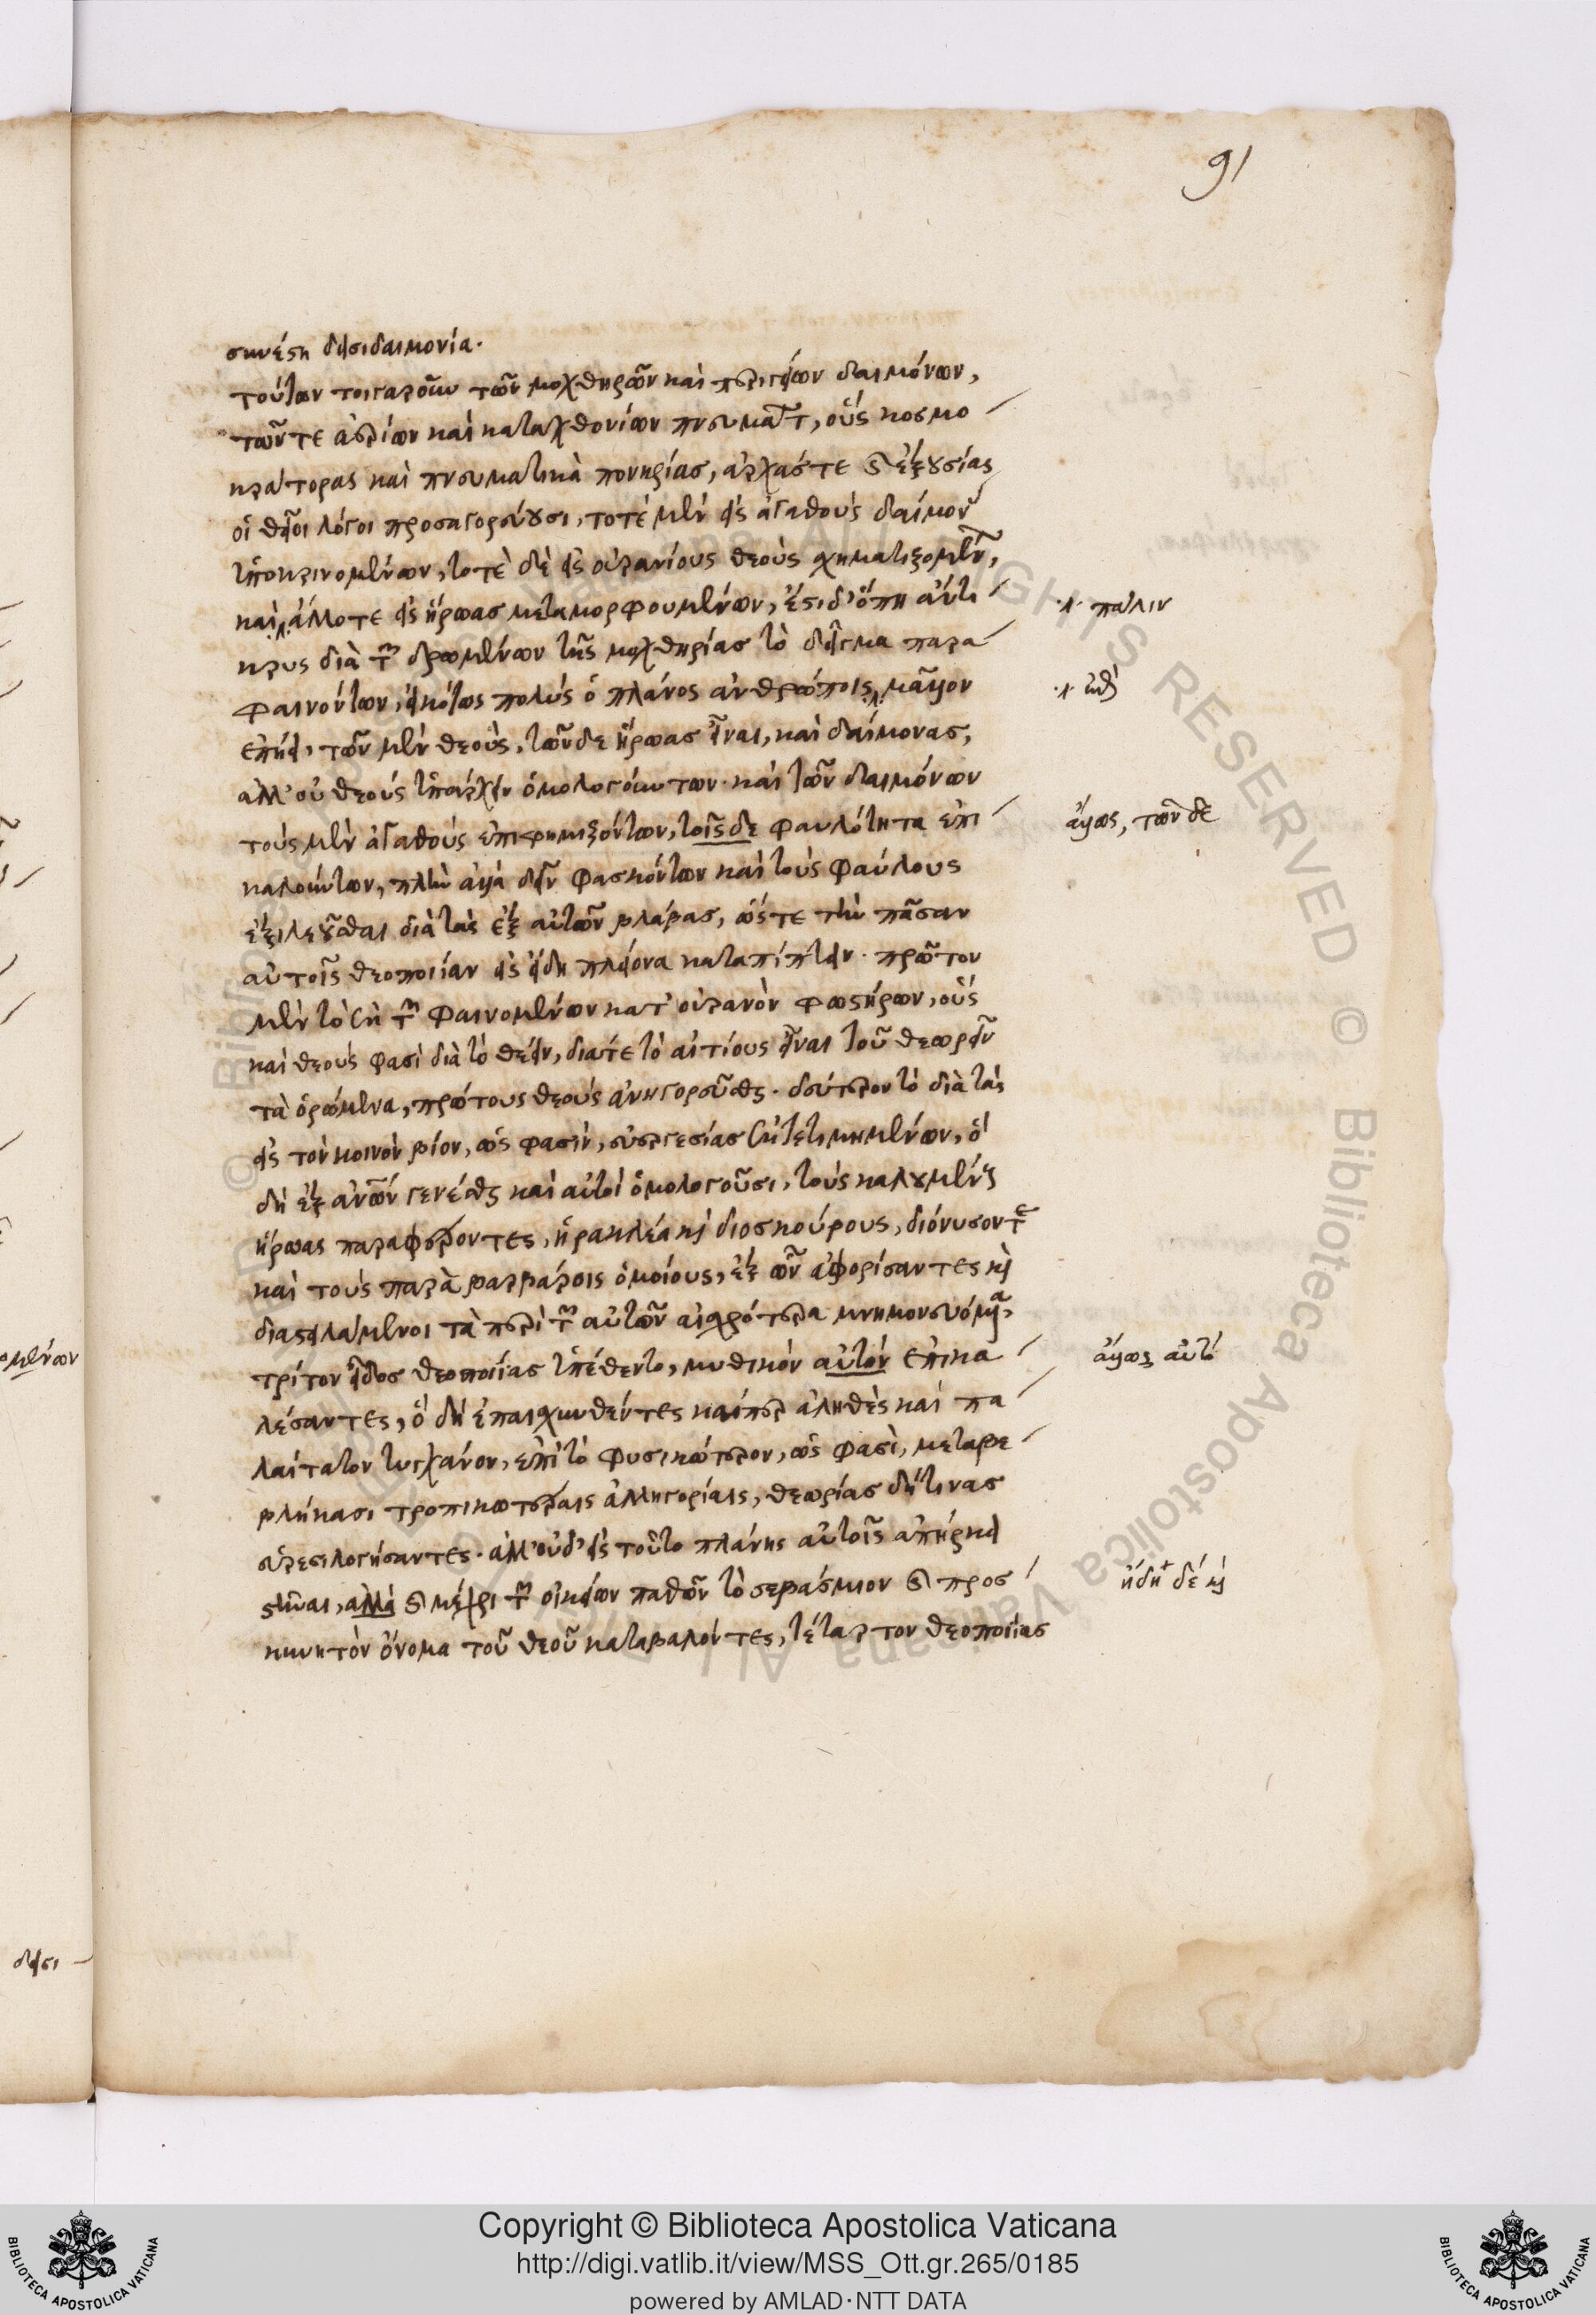 91
συνέστη δεισιδαιμονία.
τούτων τοιγαροῦν τῶν μοχθηρῶν καὶ περιγείων δαιμόνων,
τῶν τε ἀερίων καὶ καταχθονίων πνευμάτ, οὓς κοσμο
κράτορας καὶ πνευματικὰ πονηρίας, ἀρχάς τε καὶ ἐξουσίας
οἱ θεῖοι λόγοι προσαγορεύουσι, τοτὲ μὲν εἰς ἀγαθοὺς δαίμον
ὑποκρινομένων, τοτὲ δὲ εἰς οὐρανίους θεοὺς σχηματιζομέν,
καὶ ἄλλοτε εἰς ἥρωας μεταμορφουμένων, ἔστι δ' ὅπη ἄντι
κρυς διὰ τῶν δρωμένων τῆς μοχθηρίας τὸ δεῖγμα παρα
φαινόντων, εἰκότως πολὺς ὁ πλάνος ἀνθρώποις, μᾶλλον
ἐπήει, τῶν μὲν θεοὺς, τῶν δε ἥρωας εἶναι, καὶ δαίμονας,
ἀλλ' οὐ θεοὺς ὑπάρχειν ὁμολογούντων. καὶ τῶν δαιμόνων
τοὺς μὲν ἀγαθοὺς ἐπιφημιζόντων, τοῖς δε φαυλότητα ἐπι
καλούντων, πλὴν ἀλλὰ δεῖν φασκόντων καὶ τοὺς φαύλους
ἐξιλεοῦσθαι διὰ τὰς ἐξ αὐτῶν βλάβας, ὥστε τὴν πᾶσαν
αὐτοῖς θεοποιίαν εἰς εἴδη πλείονα καταπίπτειν. πρῶτον
μὲν τὸ ἐπὶ τῶν φαινομένων κατ' οὐρανὸν φωστήρων, οὓς
καὶ θεοὺς φασὶ διὰ τὸ θέειν, διά τε τὸ αἰτίους εἶναι τοῦ θεωρεῖν
τὰ ὁρώμενα, πρώτους θεοὺς ἀνηγορεῦσθαι. δεύτερον τὸ διὰ τὰς
εἰς τὸν κοινὸν βίον, ὥς φασιν, εὐεργεσίας ἐκτετιμημένων, ὃ
δὴ ἐξ ἀνων γενέσθαι καὶ αὐτοὶ ὁμολογοῦσι, τοὺς καλουμένους
ἥρωας παραφέροντες, ἡρακλέα καὶ διοσκούρους, διόνυσόν τε
καὶ τοὺς παρὰ βαρβάροις ὁμοίους, ἐξ ὧν ἀφορίσαντες καὶ
διαστειλάμενοι τὰ περὶ τῶν αὐτῶν αἰσχρότερα μνημονευόμενα,
τρίτον εἶδος θεοποιίας ὑπέθεντο, μυθικὸν αὐτὸν ἐπικα
λέσαντες, ὃ δὴ ἐπαισχυνθέντες καίπερ ἀληθὲς καὶ πα
λαίτατον τυγχάνον, ἐπὶ τὸ φυσικώτερον, ὥς φασὶ, μεταβε
βλήκασι τροπικωτέραις ἀλληγορίαις, θεωρίας δή τινας
εὑρεσιλογήσαντες. ἀλλ' οὐδ' εἰς τοῦτο πλάνης αὐτοῖς ἀπήρκει
στῆναι, ἀλλὰ καὶ μέχρι τῶν οἰκείων παθῶν τὸ σεβάσμιον καὶ προσ
κυνητὸν ὄνομα τοῦ θεοῦ καταβαλόντες, τέταρτον θεοποιίας
πάλιν
ἄλλως, τῶν δε
ἄλλως αὐτὸ
ἤδη δὲ καὶ
δεισι
Copyright © Biblioteca Apostolica Vaticana
http://digi.vatlib.it/view/MSS_Ott.gr.265/0185
powered by AMLAD·NTT DATA
BIBLIOTECA APOSTOLICA VATICANA
BIBLIOTECA APOSTOLICA VATICANA